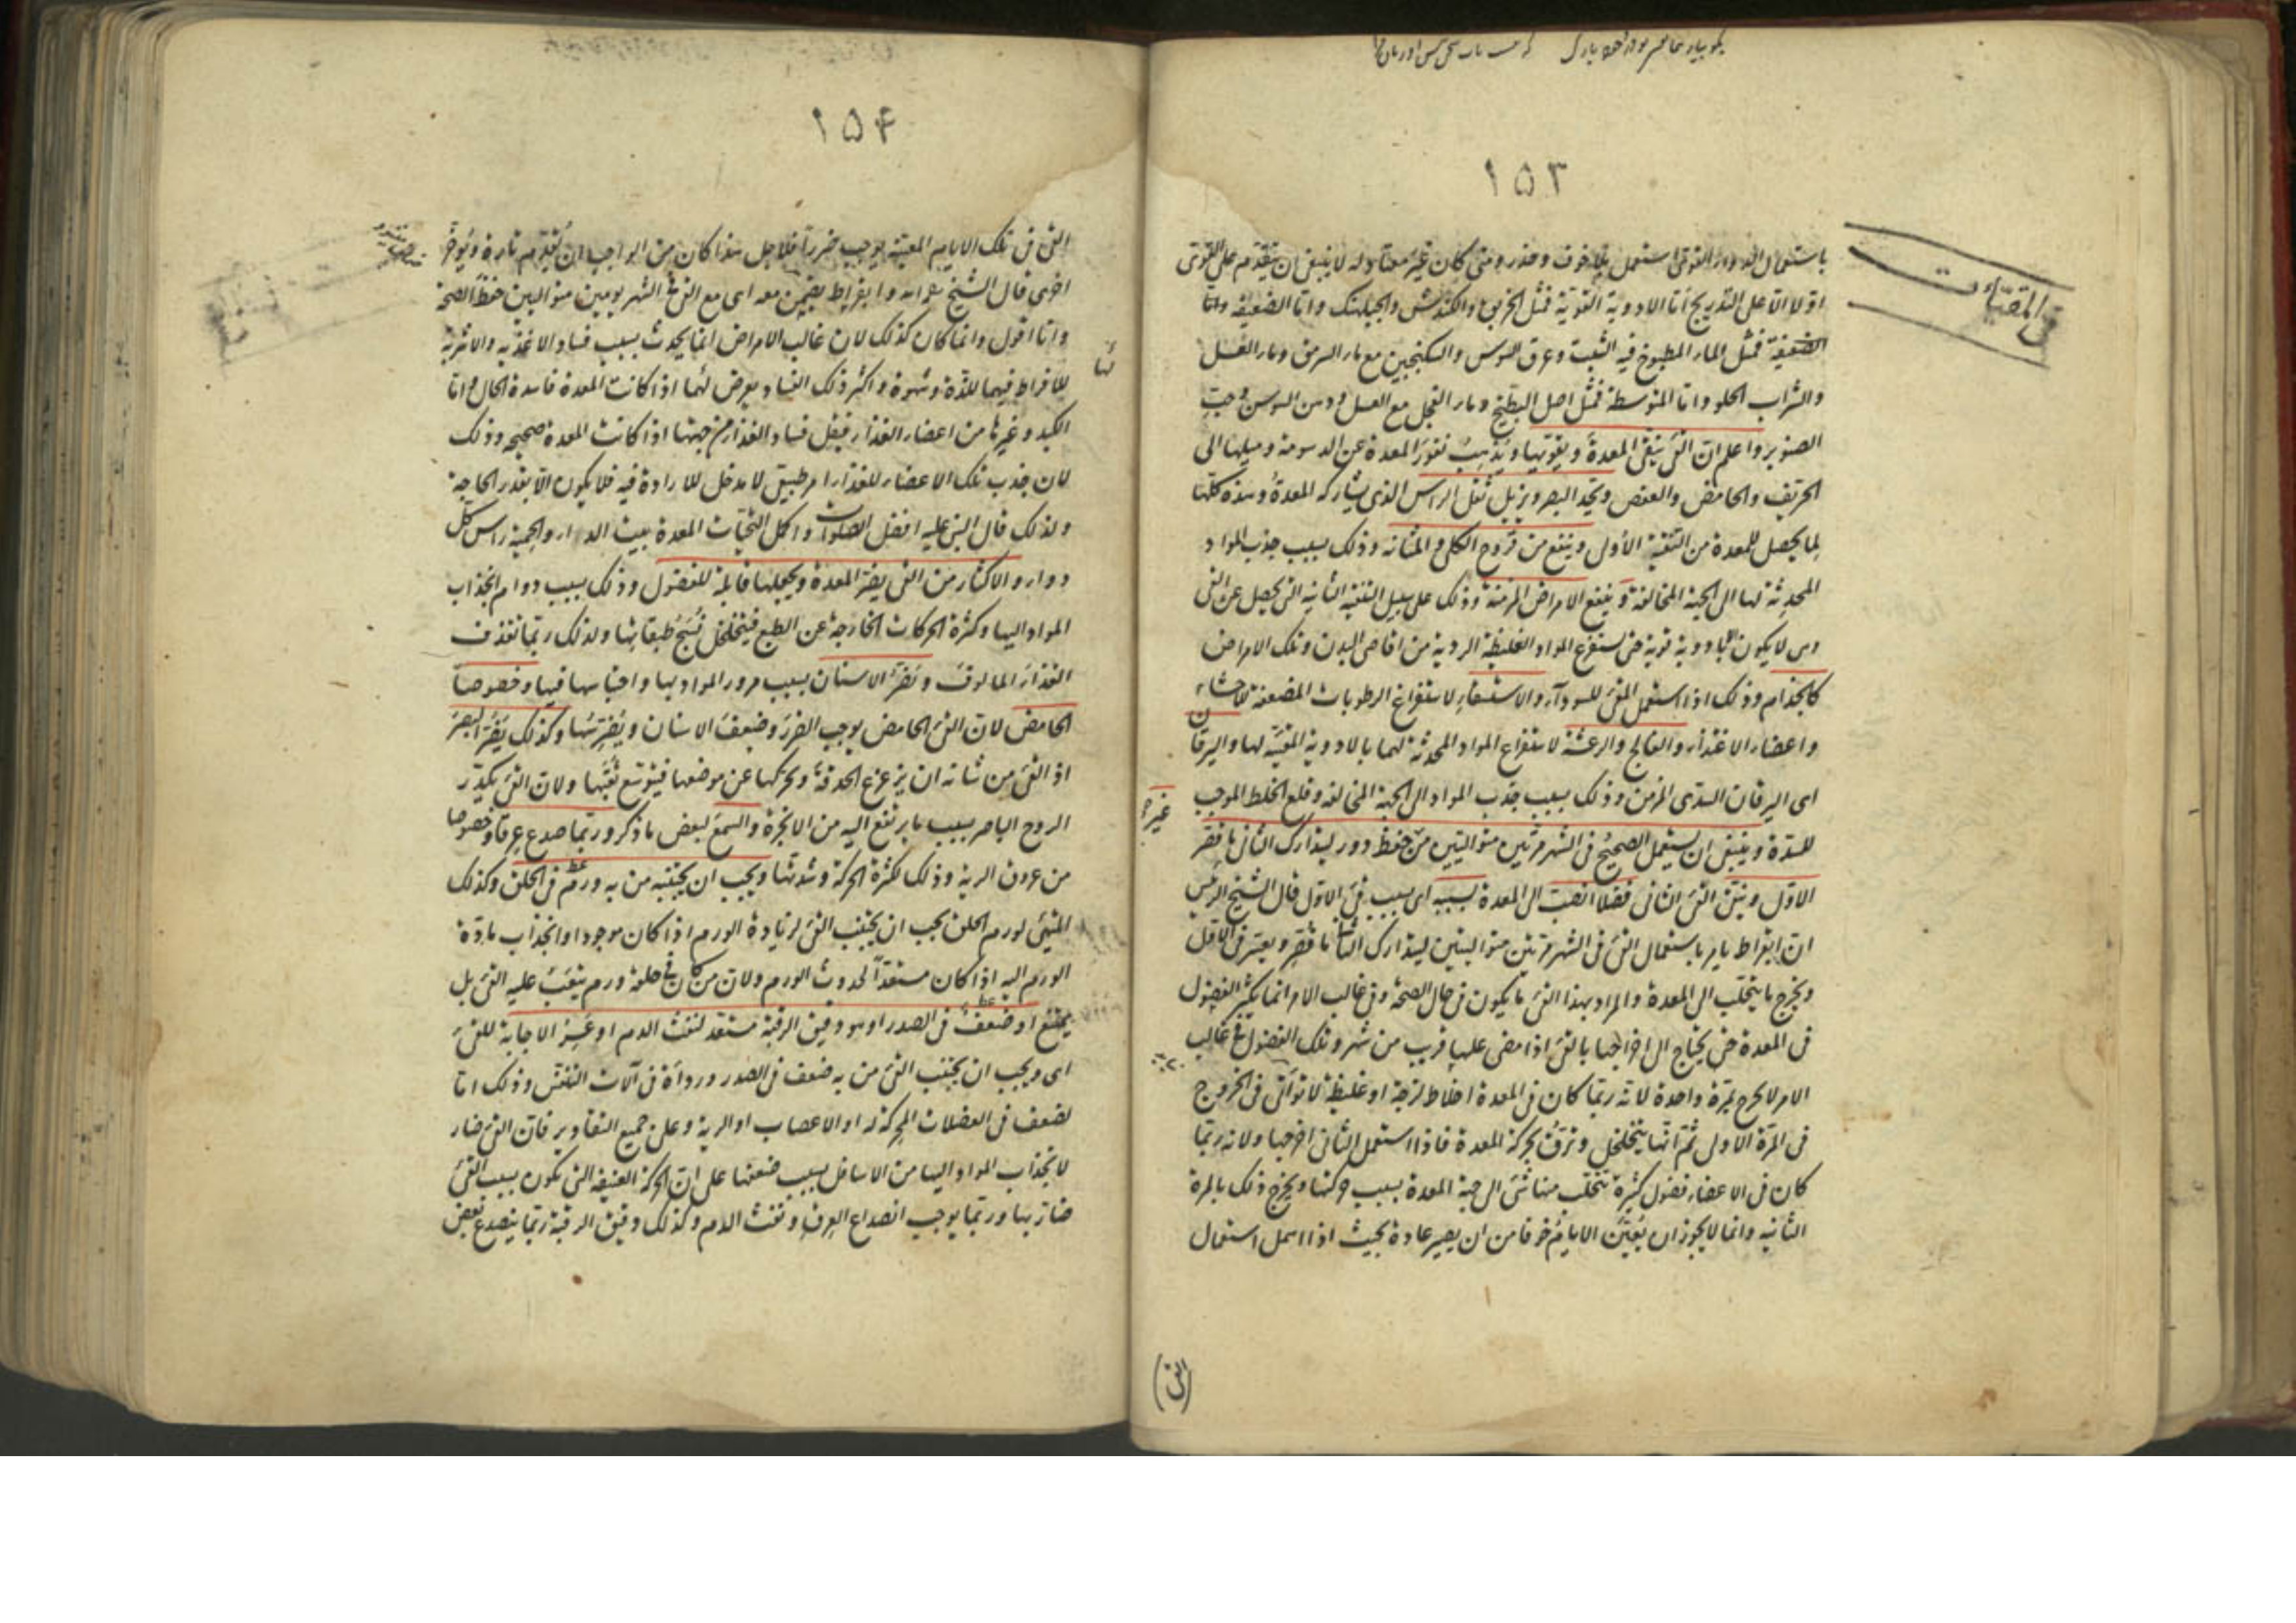 ١٥٣
فى المقيّئات
باستعمال الدواء القوى استعمل بلا خوف وحذر ومتى كان غير معتاد له لا ينبغى ان يقدم على القوى
اوّلا الّا على التدريج امّا الادوية القوية فمثل الخربق والكندش والجبلهنك وامّا الضعيفة وامّا
الضعيفة فمثل الماء المطبوخ فيه الشبت وعرق السوس والسكنجبين مع ماء السرمق وماء العسل
والشراب الحلو وامّا المتوسطة فمثل اصل البطيخ وماء الفجل مع العسل ودهن السوسن وحبّ
الصنوبر واعلم انّ القئ ينقى المعدة ويقويها ويُذهِبُ نفورَ المعدة عن الدسومة وميلها الى
الحريّف والحامض والعفص ويحدّ البصر ويزيل ثقل الراس الذى يشاركه المعدةُ وهذه كلّها
لِما يحصل للمعدة من التنقية الأولى وينفع من قروح الكلى والمثانة وذلك بسبب جذب المواد
المحدِثة لها الى الجهة المخالفة وينفع الامراض المزمنة وذلك على سبيل التنقية الثانية التى يحصل عن القئ
لا يكون الّا بادوية قوية حتى يستفرغ المواد الغليظة الردية من اقاصى البدن وتلك الامراض
كالجذام وذلك اذا استعمل المقئ للسوداء والاستسقاء لاستفراغ الرطوبات المضعفة للاحشاء
واعضاء الاغتذاء والفالج والرعشة لاستفراغ المواد المحدثة لهما بالادوية المقيّئة لها واليرقان
اى اليرقان السدّى المزمن وذلك بسبب جذب المواد الى الجهة المخالفة وقلع الخلط الموجب
للسدّة وينبغى ان يستعمل الصحيحُ فى الشهر مرّتين متواليتين من غير حفظ دور ليتدارك الثانى ما قصر
الاوّل وينقّى القئ الثانى فضلا انصبّ الى المعدة بسببه اى بسبب قئ الاوّل قال الشيخ الرئيس
انّ ابقراط يامر باستعمال القئ فى الشهر مرّتين متواليتين ليتدارك الثانى ما قصر وتعسّر فى الاوّل
ويخرج ما يتحلّب الى المعدة والمراد بهذا القئ ما يكون فى حال الصحّة وفى غالب الامر انّما يكثر الفضول
فى المعدة حتى يحتاج الى اخراجها بالقئ اذا مضى عليها قريب من شهر وتلك الفضول فى غالب
الامر لا يخرج بمرّة واحدة لانّه ربّما كان فى المعدة اخلاط لزجة او غليظة لا تواتى فى الخروج
فى المرّة الاولى ثمّ انّها يتخلخل وترقّ بحركة المعدة فاذا استعمل الثانى اخرجها ولانه ربّما
كان فى الاعضاء فضول كثيرة يتحلّب منها شئ الى جهة المعدة بسبب حركتها ويخرج ذلك بالمرة
الثانية وانّما لا يجوز ان يعيّن الايام خوفا من ان يصير عادة بحيث اذا اهمل استعمال
(القئ)
١٥۴
القئ فى تلك الايام المعيّنة يوجب ضررا فلاجل هذا كان من الواجب ان يُقدّم تارة ويُؤخّر
اخرى قال الشيخ وابقراط يضمن معه اى مع القئ فى الشهر يومين متواليين حفظ الصحّة
وانا اقول وانّما كان كذلك لان غالب الامراض انّما يحدث بسبب فساد الاغذية والاشربة
للافراط فيهما للذة وشهوة واكثر ذلك الفساد يعرض لهما اذا كانت المعدة فاسدة الحال وامّا
الكبد وغيرها من اعضاء الغذاء فيقل فساد الغذاء من جهتها اذا كانت المعدة صحيحة وذلك
لان جذب تلك الاعضاء للغذاء امر طبيعى لا مدخل للارادة فيه فلا يكون الّا بقدر الحاجة
ولذلك قال النبى عليه افضل الصلوات واكمل التحيّات المعدة بيت الداء والحمية راس كلّ
دواء والاكثار من القئ يضرّ المعدة ويجعلها قابلة للفضول وذلك بسبب دوام انجذاب
المواد اليها وكثرة الحركات الخارجة عن الطبع فيتخلخل نسج طبقاتها ولذلك ربّما تقذف
الغذاءَ المالوفَ ويضرّ الاسنان بسبب مرور المواد بها واحتباسها فيها وخصوصا
الحامض لانّ القئ الحامض يوجب الضرر وضعف الاسنان ويُضَرِّسُها وكذلك يضرّ البصر
اذ القئ من شانه ان يزعزع الحدقة ويحركها عن موضعها فيتوسّع ثقبها ولانّ القئ يكدّر
الروح الباصر بسبب ما يرتفع اليه من الابخرة والسمع لبعض ما ذكر وربّما صدع عرقا وخصوصا
من عروق الرية وذلك لكثرة الحركة وشدّتها ويجب ان يجتنبه من به ورم فى الحلق وكذلك
المتهيّئ لورم الحلق يجب ان يجتنب القئ لزيادة الورم اذا كان موجودا وانجذاب مادّة
الورم اليه اذا كان مستعدّا لحدوث الورم ولانّ من كان فى حلقه ورم يتعب عليه القئ بل
يمتنع او ضعف فى الصدر او هو دقيق الرقبة مستعد لنفث الدم او عَسِر الاجابة للقئ
اى ويجب ان يجتنب القئ من به ضعف فى الصدر ورداءة فى آلات التنفس وذلك امّا
لضعف فى العضلات المحركة له او الاعصاب او الرية وعلى جميع التقادير فانّ القئ ضار
لانجذاب المواد اليها من الاسافل بسبب ضعفها على انّ الحركة العنيفة التى تكون بسبب القئ
ضارّ بها وربّما يوجب انصداع العرق ونفث الدم وكذلك دقيق الرقبة ربّما ينصدع بعض